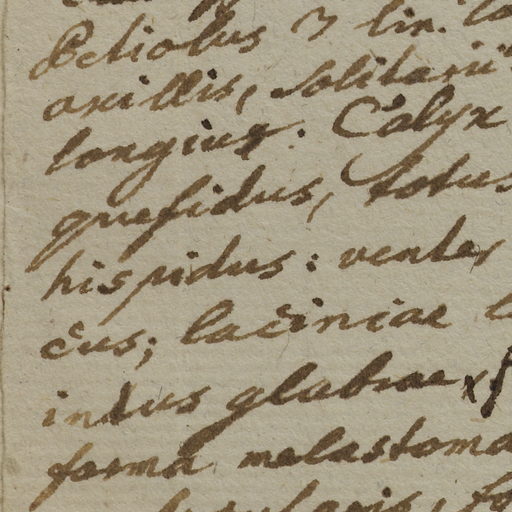 Petiolus 3 lin.
axillis, solitarii
longius. Calyx
quefidus, totus
hispidus: venter
cus; laciniae
indus glabrae x
forma melastoma